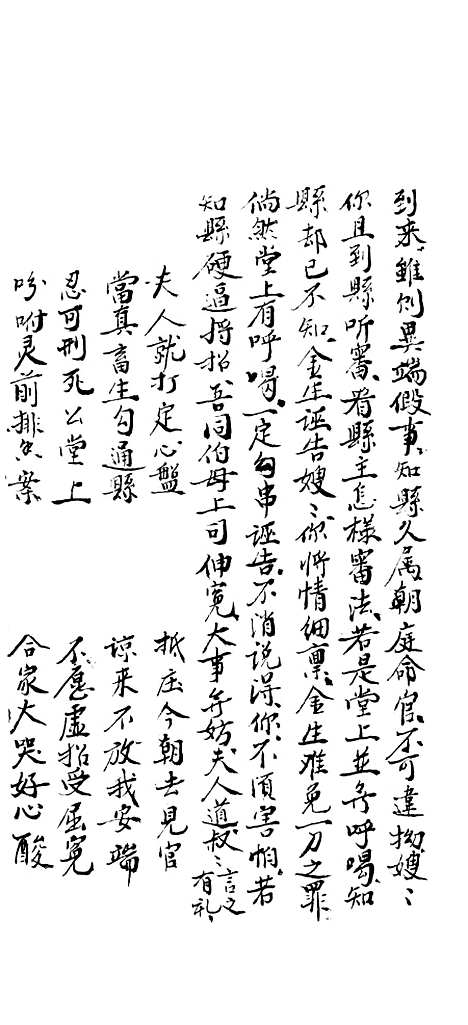 到来、雖則異端假事、知縣久属朝庭命官、不可違拗、嫂〻
你且到縣听審、看縣主怎樣審法、若是堂上並無呼喝、知
縣却已不知、金生誣告嫂〻、你将情細禀、金生难免一刀之罪、
倘然堂上有呼喝、一定勾串誣告、不消説得、你不須害怕、若
知縣硬逼招招、吾同伯母上司伸寃、大事無妨、夫人道叔〻言之有礼、
夫人就打定心盤　抵庒今朝去見官
當真畜生勾通縣　諒来不放我安端
忍可刑死公堂上　不愿虚招受屈寃
吩咐灵前排香案　合家大哭好心酸